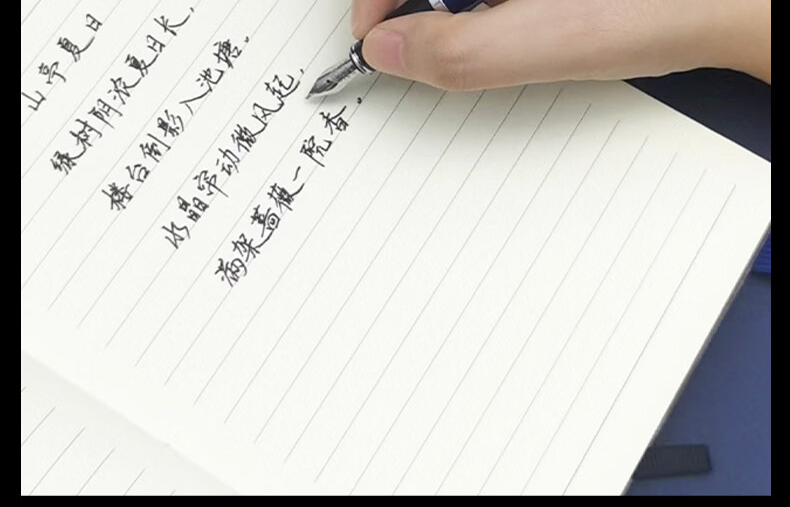 山亭夏日
绿树阴浓夏日长，
楼台倒影入池塘。
水晶帘动微风起，
满架蔷薇一院香。